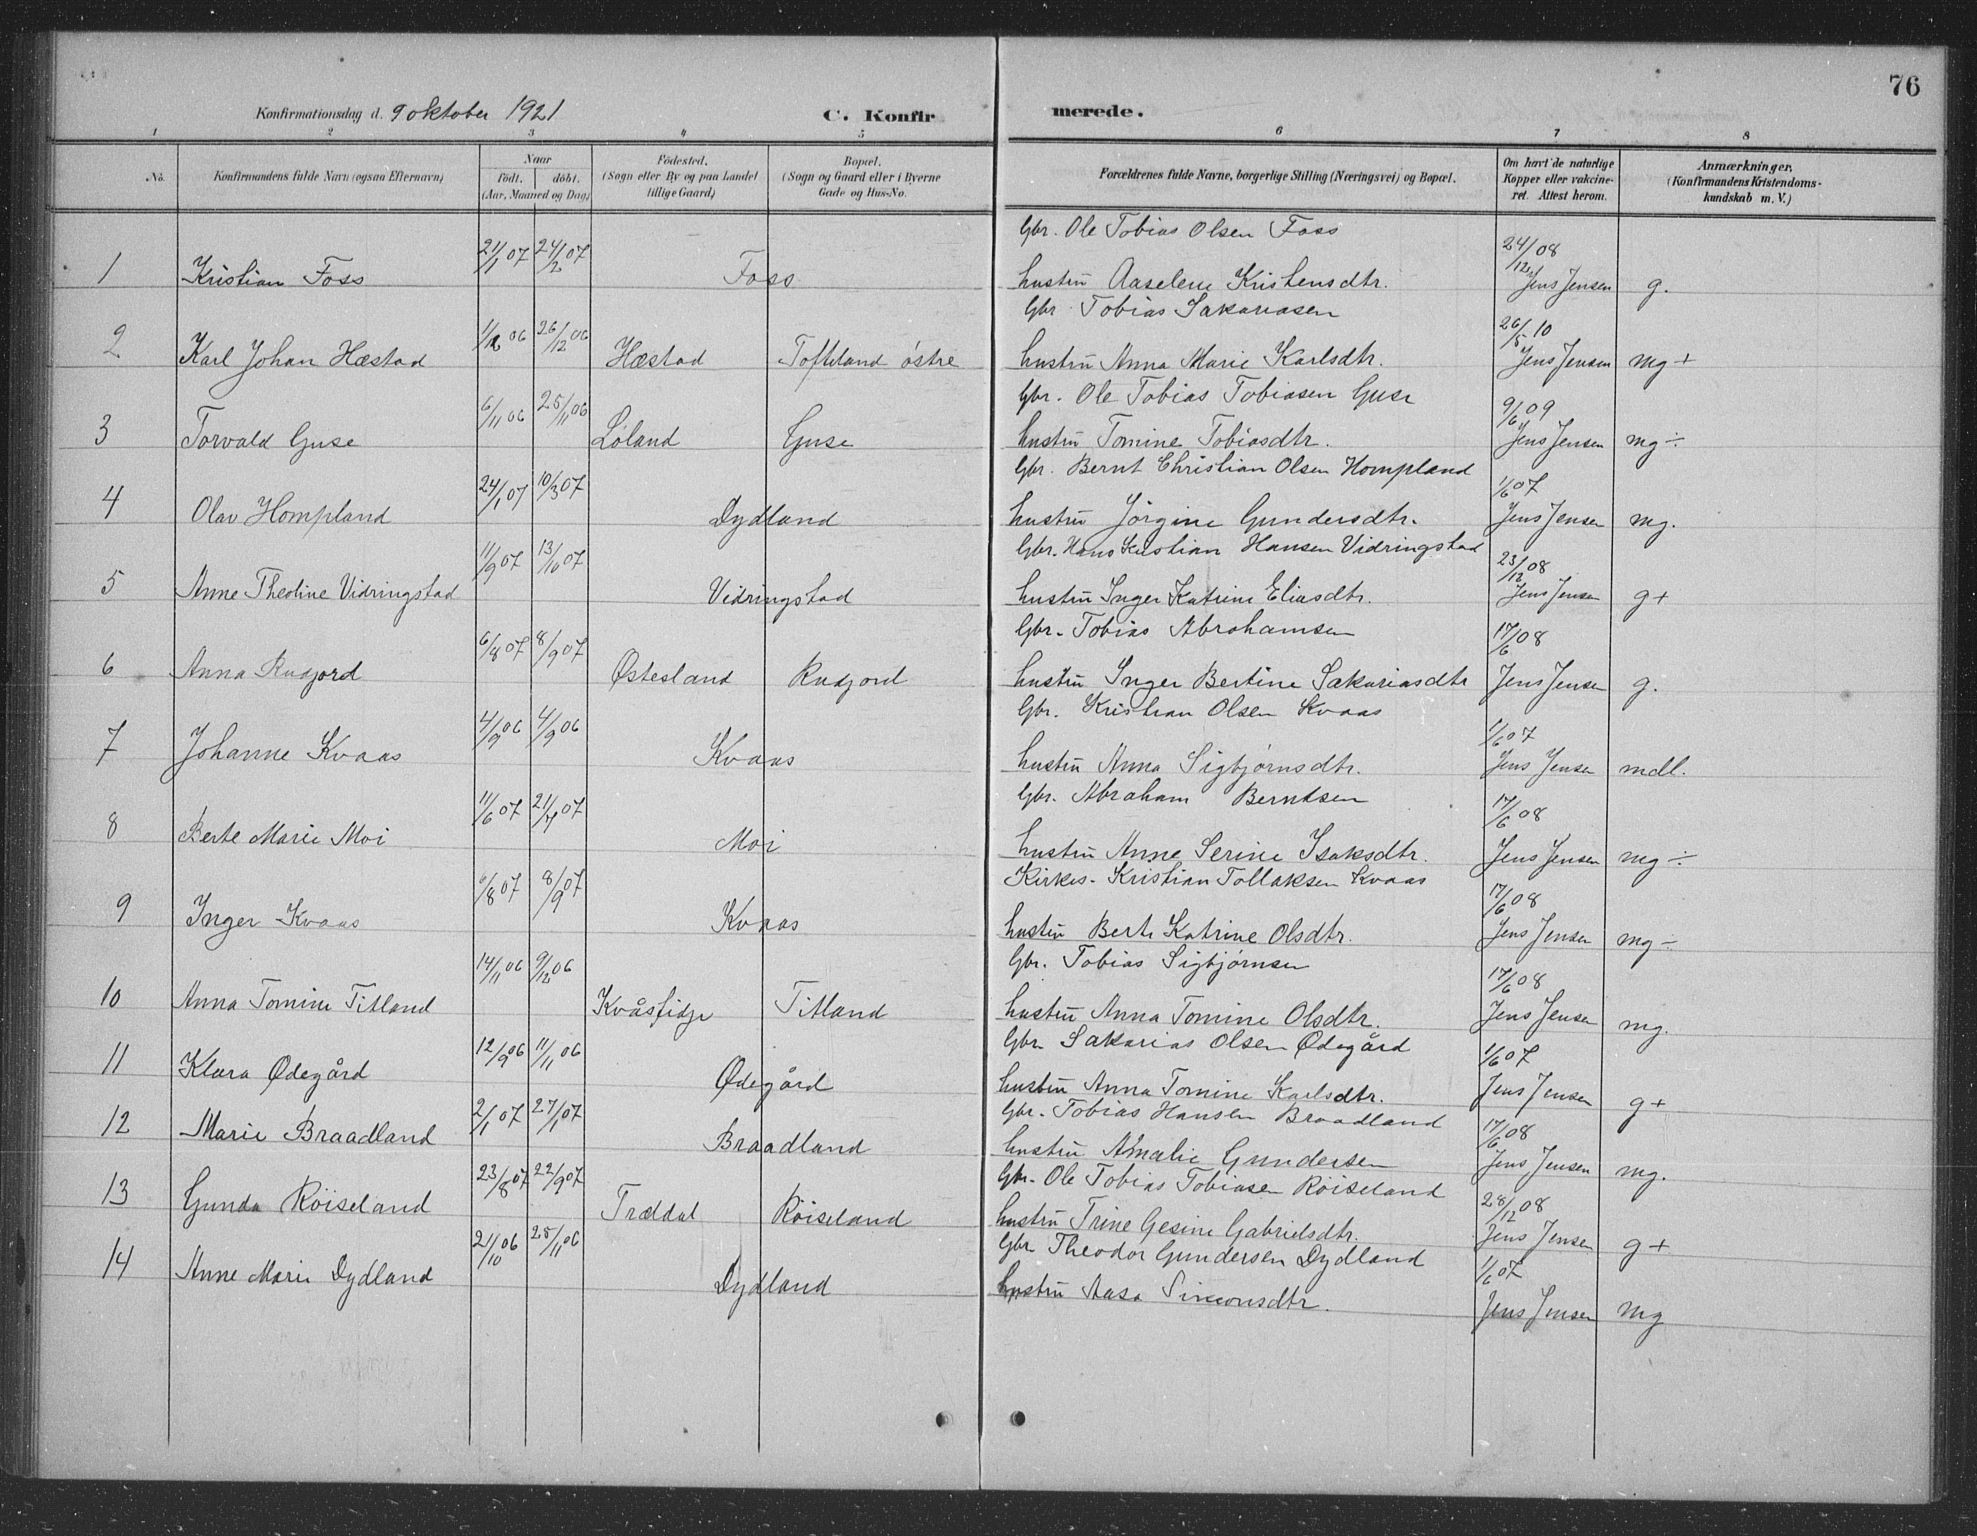 76
Konfirmationsdag d. 9 oktober 1921 C. Konfirmerede.
1 2 3 4 5 6 7 8
No. Konfirmandens fulde Navn (ogsaa Efternavn) Naar födt. döbt. (Aar, Maaned og Dag) Födested. (Sogn eller By og paa Landet tillige Gaard) Bopæl. (Sogn og Gaard eller i Byerne Gade og Hus-No. Forældrenes fulde Navne, borgerlige Stilling (Næringsvei) og Bopæl. Om havt de naturlige Kopper eller vakcineret. Attest herom. Anmærkninger, (Konfirmandens Kristendomskundskab m. V.)
Gbr. Ole Tobias Olsen Foss
1 Kristian Foss 21/1 07 24/2 07 Foss hustru Aaselene Kristensdtr. 24/12 08 Jens Jensen g.
Gbr. Tobias Sakariasen
2 Karl Johan Hæstad 1/12 06 26/12 06 Hæstad Tofteland østre hustru Anna Marie Karlsdtr. 26/5 10 Jens Jensen mg +
Gbr. Ole Tobias Tobiasen Guse
3 Torvald Guse 6/11 06 25/11 06 Løland Guse hustru Tomine Tobiasdtr. 9/6 09 Jens Jensen mg ÷
Gbr. Bernt Christian Olsen Hompland
4 Olav Hompland 24/1 07 10/3 07 Dydland hustru Jörgine Gundersdtr. 1/6 07 Jens Jensen mg.
Gbr. Hans Kristian Hansen Vidringstad
5 Anne Theoline Vidringstad 11/9 07 13/10 07 Vidringstad hustru Inger Katrine Eliasdtr. 23/12 08 Jens Jensen g +
Gbr. Tobias Abrahamsen
6 Anna Rudjord 6/8 07 8/9 07 Østesland Rudjord hustru Inger Bertine Sakariasdtr 17/6 08 Jens Jensen g.
Gbr. Kristian Olsen Kvaas
7 Johanne Kvaas 4/9 06 4/9 06 Kvaas hustru Anna Sigbjørnsdtr. 1/6 07 Jens Jensen mdl.
Gbr. Abraham Berntsen
8 Berte Marie Moi 11/6 07 21/7 07 Moi hustru Anne Serine Isaksdtr. 17/6 08 Jens Jensen mg ÷
Kirkes. Kristian Tollaksen Kvaas
9 Inger Kvaas 6/8 07 8/9 07 Kvaas hustru Berte Katrine Olsdtr. 17/6 08 Jens Jensen mg ÷
Gbr. Tobias Sigbjørnsen
10 Anna Tomine Titland 14/11 06 9/12 06 Kvåsfidje Titland hustru Anna Tomine Olsdtr. 17/6 08 Jens Jensen mg.
Gbr. Sakarias Olsen Ødegård
11 Klara Ødegård 12/9 06 11/11 06 Ødegård hustru Anna Tomine Karlsdtr. 1/6 07 Jens Jensen g +
Gbr. Tobias Hansen Braadland
12 Marie Braadland 2/1 07 27/1 07 Braadland hustru Amalie Gundersen 17/6 08 Jens Jensen mg.
Gbr. Ole Tobias Tobiasen Röiseland
13 Gunda Röiseland 23/8 07 22/9 07 Trældal Röiseland hustru Trine Gesine Gabrielsdtr. 28/12 08 Jens Jensen g +
Gbr Theodor Gundersen Dydland
14 Anne Marie Dydland 21/10 06 25/11 06 Dydland hustru Aasa Simonsdtr. 1/6 07 Jens Jensen mg